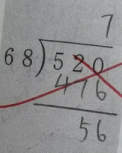 7
68)520
476
56